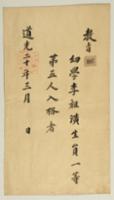 教旨
幼學李祖璜生員一等
第五人入格者
道光二十年三月 日